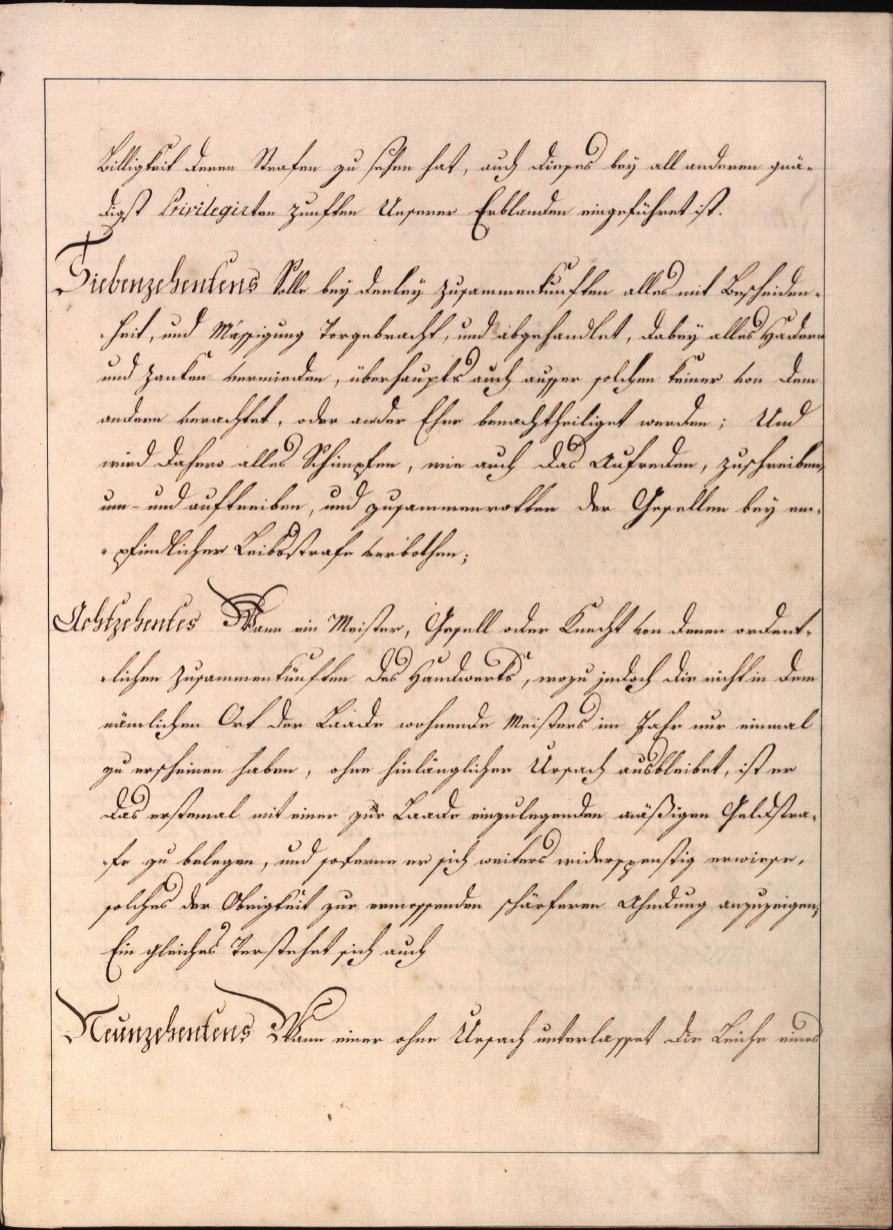 Billigkeit deren Strafen zu sehen hat, auch dieses bey all anderen gnä-
digst Privilegirten Zunften Unserer Erblanden eingeführet ist.
Siebenzehentens Solle bey derley Zusammenkunften alles mit Bescheiden-
heit, und Mäßigung vorgebracht, und abgehandlet, dabey alles Hadern
und Zanken vermieden, überhaupts auch ausser solchen keiner von dem
andern verachtet, oder an der Ehre benachtheiliget werden; Und
wird dahero alles Schimpfen, wie auch das Aufreden, zuschreiben,
um- und auftreiben, und zusammenrotten der Gesellen bey em-
pfindlicher Leibsstrafe verbothen;
Achtzehentes Wann ein Meister, Gesell oder Knecht von denen ordent-
lichen Zusammenkünften des Handwerks, wozu jedoch die nicht in dem
nämlichen Ort der Laade wohnende Meisters im Jahr nur einmal
zu erscheinen haben, ohne hinlänglicher Ursach ausbleibet, ist er
das erstemal mit einer zur Laade einzulegenden mäßigen Geldstra-
fe zu belegen, und soferne er sich weiters widerspenstig erwiese,
solches der Obrigkeit zur ermessenden schärferen Ahndung anzuzeigen,
Ein gleiches verstehet sich auch
Neunzehentens Wann einer ohne Ursach unterlasset die Leiche eines